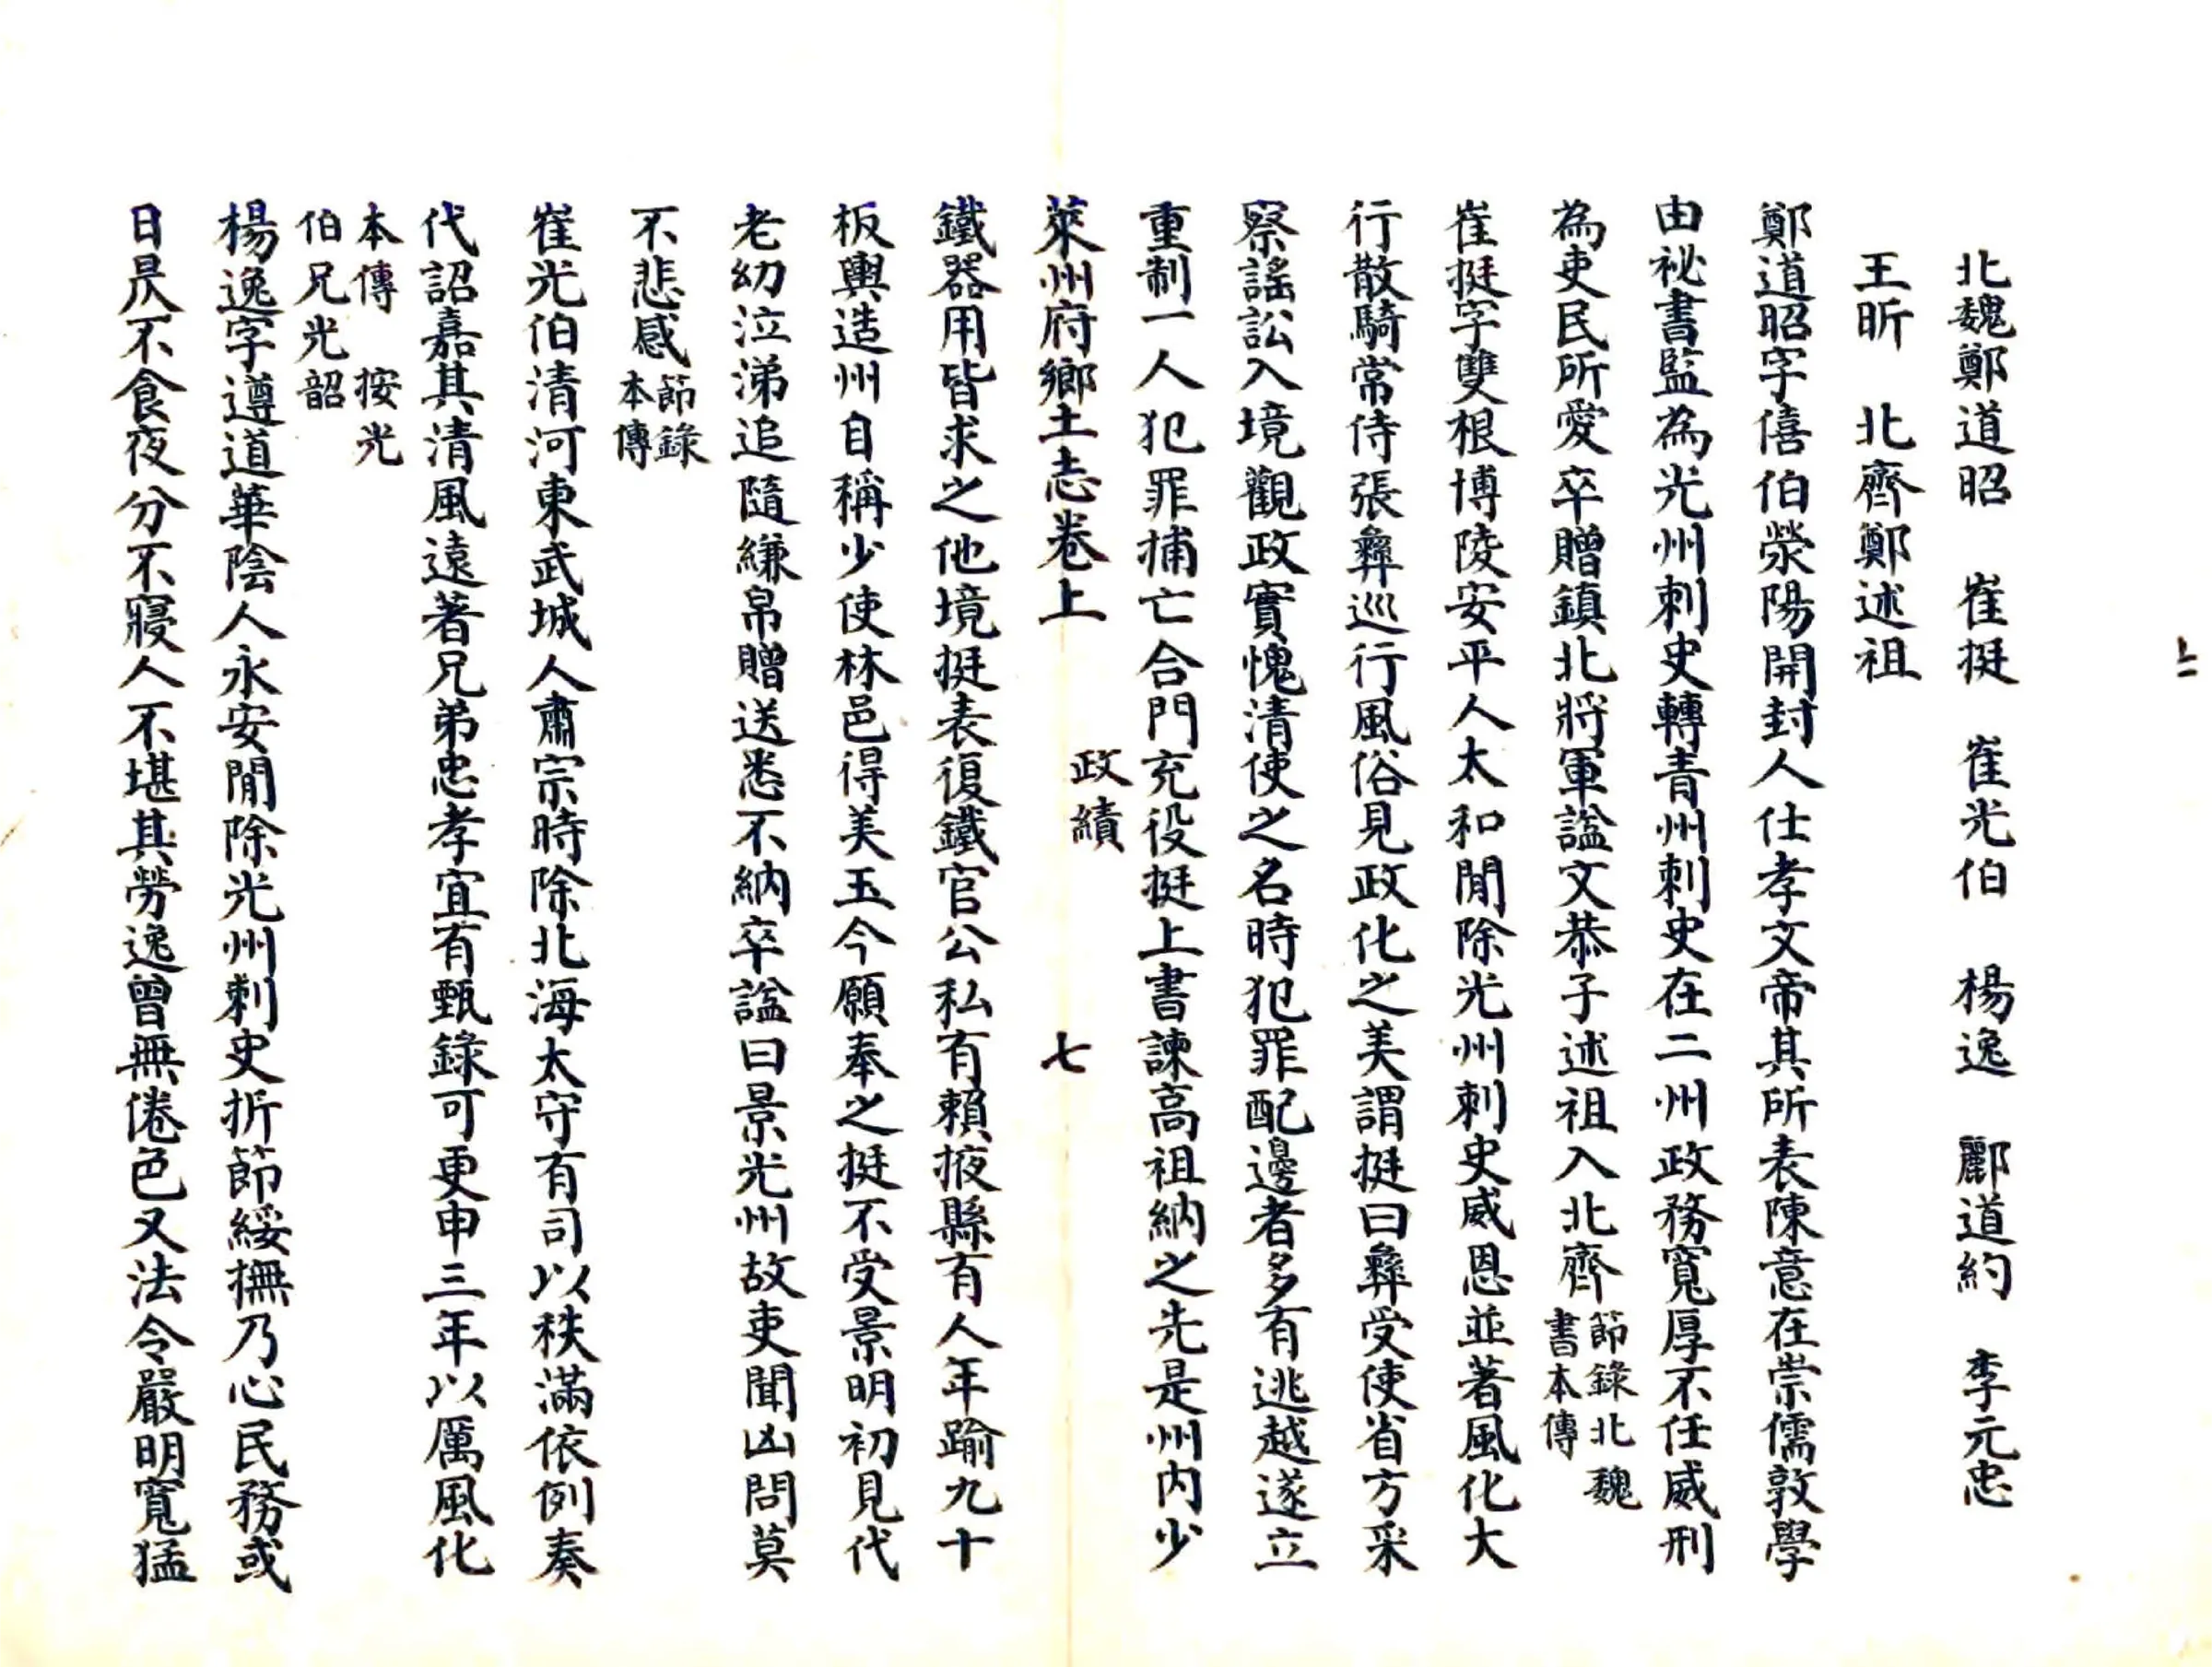 北魏鄭道昭　崔挺　崔光伯　楊逸　酈道約　李元忠
王昕　北齊鄭述祖
鄭道昭字僖伯滎陽開封人仕孝文帝其所表陳意在崇儒敦學
由祕書監為光州刺史轉青州刺史在二州政務寬厚不任威刑
為吏民所愛卒贈鎮北將軍諡文恭子述祖入北齊節錄北魏書本傳
崔挺字雙根博陵安平人太和閒除光州刺史威恩並著風化大
行散騎常侍張彝巡行風俗見政化之美謂挺曰彝受使省方采
察謠訟入境觀政實愧清使之名時犯罪配邊者多有逃越遂立
重制一人犯罪捕亡合門充役挺上書諫高祖納之先是州內少
萊州府鄉土志卷上　政績　七
鐵器用皆求之他境挺表復鐵官公私有賴掖縣有人年踰九十
板輿造州自稱少使林邑得美玉今願奉之挺不受景明初見代
老幼泣涕追隨縑帛贈送悉不納卒諡曰景光州故吏聞凶問莫
不悲感節錄本傳
崔光伯清河東武城人肅宗時除北海太守有司以秩滿依例奏
代詔嘉其清風遠著兄弟忠孝宜有甄錄可更申三年以厲風化
本傳　按光
伯兄光韶
楊逸字遵道華陰人永安閒除光州刺史折節綏撫乃心民務或
日昃不食夜分不寢人不堪其勞逸曾無倦色又法令嚴明寬猛